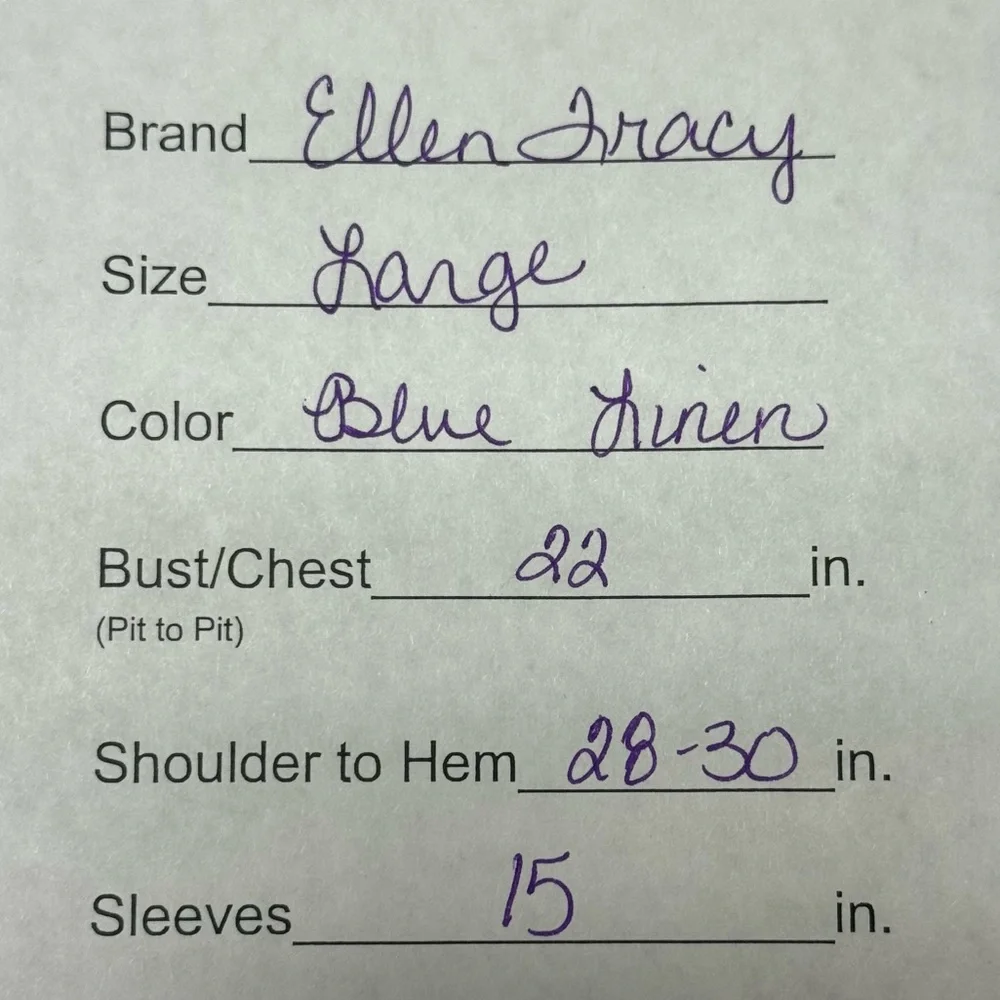 Brand Ellen Tracy
Size Large
Color Blue Linen
Bust/Chest 22 in.
(Pit to Pit)
Shoulder to Hem 28-30 in.
Sleeves 15 in.